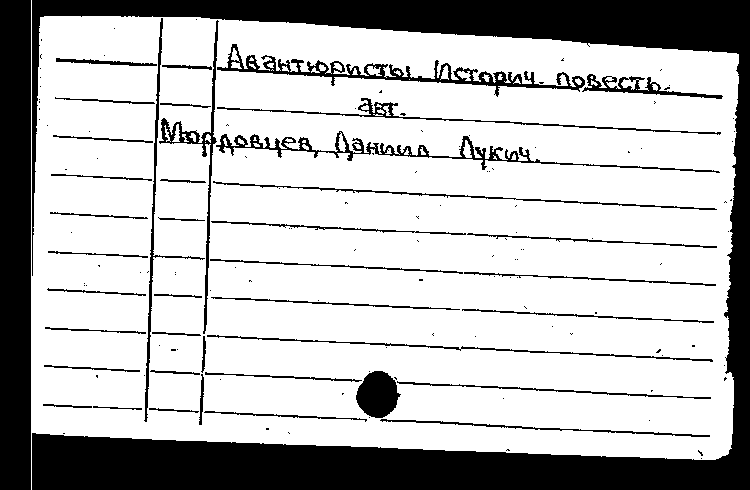 Авантюристы. Историч. повесть.
авт.
Мордовцев, Даниил Лукич.